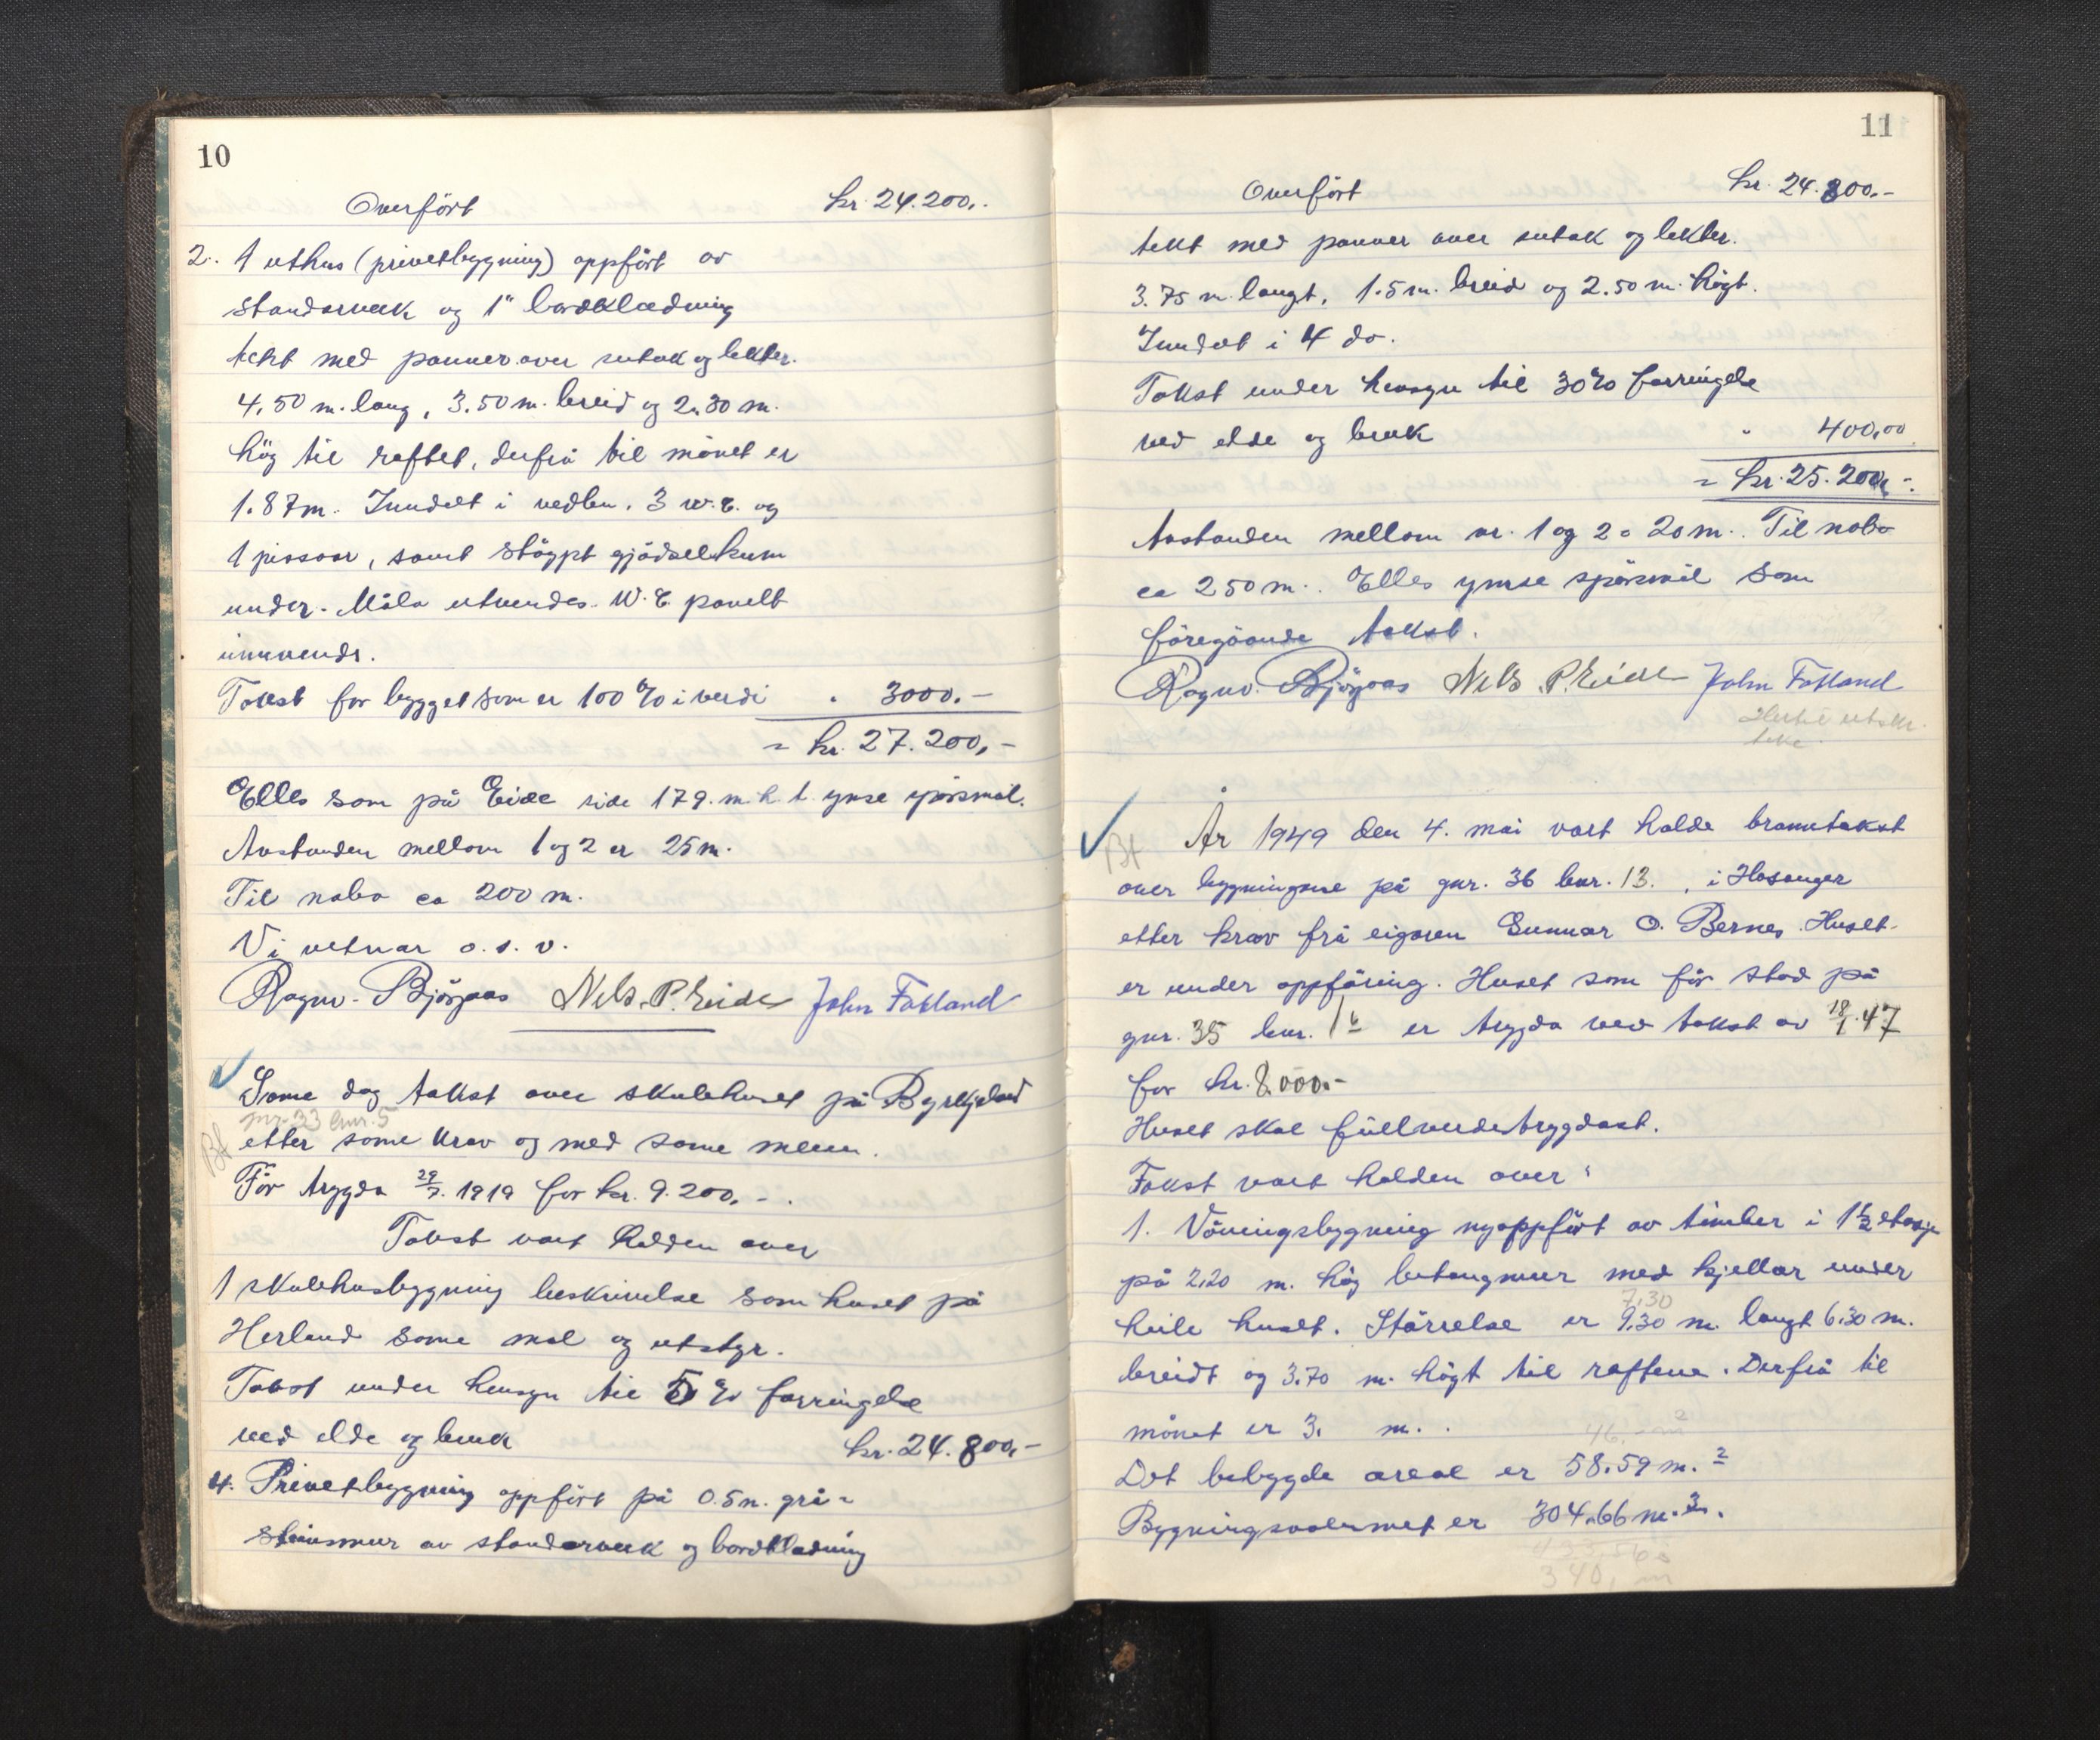 10
Overført kr. 24.200,-
2. 1 uthus (privetbygning) oppført av
standarverk og 1" bordklædning
tekt med panner over sutak og lekter.
4,50 m. lang, 3.50 m. breid og 2,30 m.
høg til raftet, derfrå til mønet er
1.87 m. Inndelt i vedbu, 3 W.C. og
1 pissoar, samt støypt gjødselkum
under. Måla utvendes. W.C. panelt
innvends.
Takst for bygget som er 100 % i verdi " 3000.-
= kr. 27.200,-
Elles som på Eide side 179. m.h.t. ymse spørsmål.
Avstanden mellom 1 og 2 er 25 m.
Til nabo ca 200 m.
Vi vetnar o.s.v.
Ragnv. Bjørgaas Nils. P. Eide John Fotland
Same dag takst over skulehuset på Byrkjeland
gnr. 33 bnr. 5
Bf etter same krav og med same menn.
Før trygda 29/7. 1919 for kr. 9.200,-.
Takst vart halden over
1 skulehusbygning beskrivelse som huset på
Herland same mål og utstyr.
Takst under hensyn til 5 % forringelse
ved elde og bruk kr. 24.800,-
4. Privetbygning oppført på 0.5 m. grå-
steinsmur av standarverk og bordkledning
11
Overført kr. 24.800.-
tekt med panner over sutak og lekter.
3.75 m. langt, 1.5 m. breid og 2.50 m. høgt.
Inndelt i 4 do.
Takst under hensyn til 30 % forringelse
ved elde og bruk " 400,00
= kr. 25.200,-.
Avstanden mellom nr. 1 og 2 = 20 m. Til nabo
ca 250 m. Elles ymse spørsmål som
føregåande takst.
Ragnv. Bjørgaas Nils. P. Eide John Fotland
Hertil utskr.
teke.
År 1949 den 4. mai vart halde branntakst
Bf over bygningane på gnr. 36 bnr. 13. , i Hosanger
etter krav frå eigaren Gunnar O. Bernes. Huset
er under oppføring. Huset som før stod på
gnr. 35 bnr. 1 b er trygda ved takst av 18/1.47
for kr. 8.000.-
Huset skal fullverdetrygdast.
Takst vart halden over:
1. Våningsbygning nyoppført av timber i 1 1/2 etasje
på 2,20 m. høg betongmur med kjellar under
7,30
heile huset. Størrelse er 9,30 m. langt 6,30 m.
breidt og 3,70 m. høgt til raftene. Derfrå til
mønet er 3, m. .
46,- m²
Det bebygde areal er 58.59 m.²
Bygningsvolumet er 304,66 m.3.
340, m